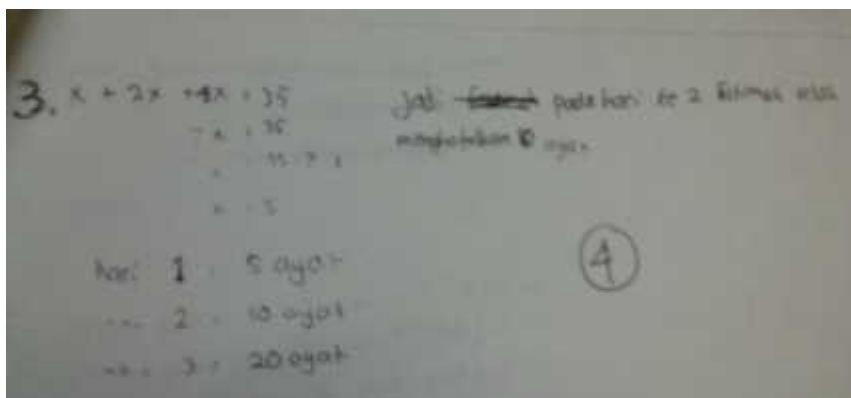 3. x + 2x + 4x = 35
7x = 35
x = 35 : 7
x = 5
hari 1 = 5 ayat
2 = 10 ayat
3 = 20 ayat
Jadi pada hari ke 2 Fatimah telah
menghafalkan 10 ayat
4